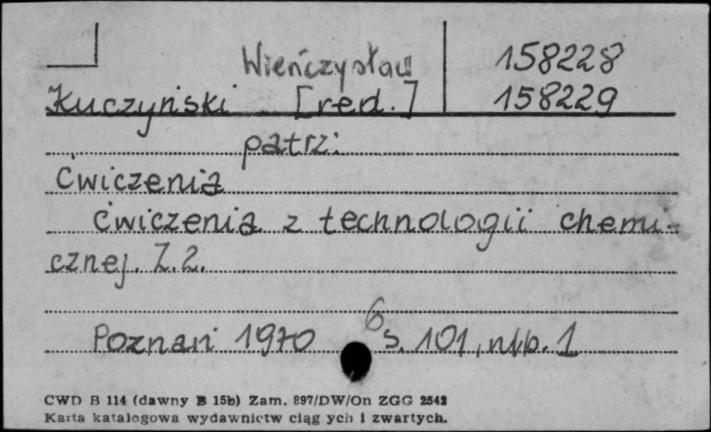 Wieńczysław 158228
Kuczyński [red.] 158229
patrz:
Ćwiczenia
ćwiczenia z technologii chemi-
cznej. Z.2.
Poznań 1970 6 s. 101, nlb. 1
CWD B 114 (dawny B 15b) Zam. 897/DW/On ZGG 2542
Karta katalogowa wydawnictw ciąg ych i zwartych.